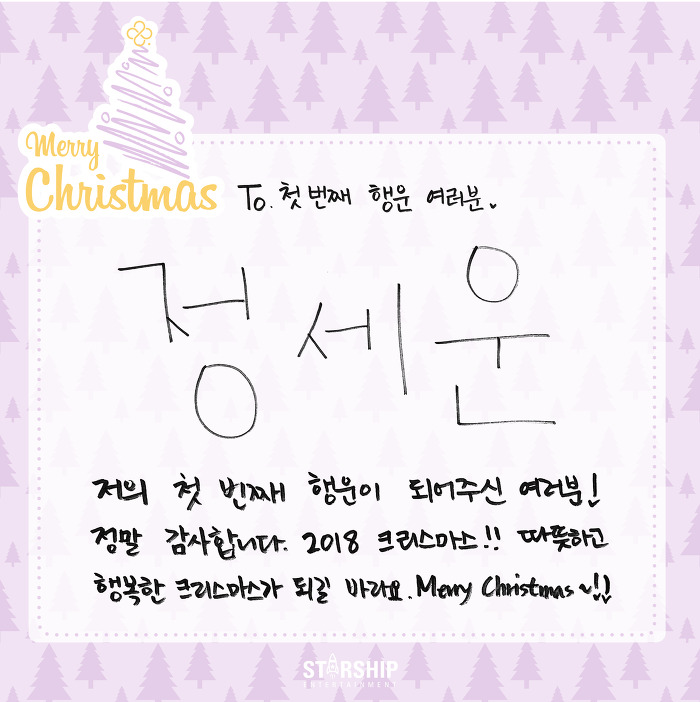 Merry
Christmas
To. 첫 번째 행운 여러분.
정세운
저의 첫 번째 행운이 되어주신 여러분!
정말 감사합니다. 2018 크리스마스!! 따뜻하고
행복한 크리스마스가 되길 바라요. Merry Christmas ~!!
STARSHIP
ENTERTAINMENT